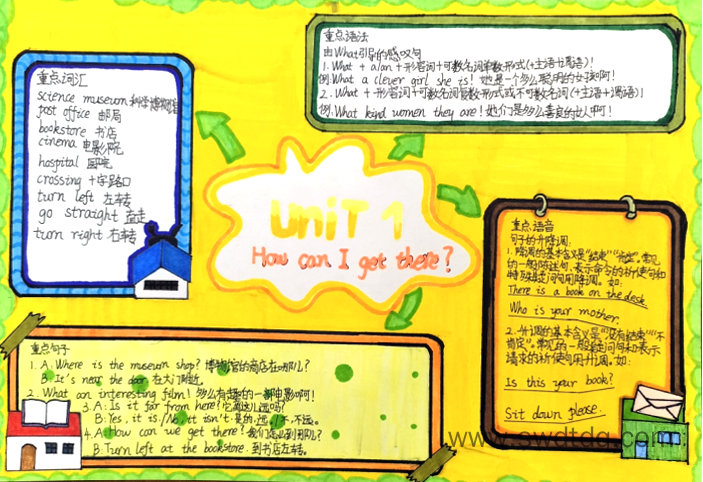 重点词汇
science museum 科学博物馆
post office 邮局
bookstore 书店
cinema 电影院
hospital 医院
crossing 十字路口
turn left 左转
go straight 直走
turn right 右转
重点语法
由What引导的感叹句
1. What + a/an + 形容词 + 可数名词单数形式(+主语+谓语)!
例:What a clever girl she is! 她是一个多么聪明的女孩啊!
2. What + 形容词+可数名词复数形式或不可数名词(+主语+谓语)!
例:What kind women they are! 她们是多么善良的女人啊!
UniT 1
How can I get there?
重点语音
句子的升降调:
1. 降调的基本含义是"结束""肯定"。常见
的一般陈述句、表示命令的祈使句和
特殊疑问句用降调。如:
There is a book on the desk.
Who is your mother.
2. 升调的基本含义是"没有结束""不
肯定"。常见的一般疑问句和表示
请求的祈使句用升调。如:
Is this your book?
Sit down please.
重点句子
1. A: Where is the museum shop? 博物馆的商店在哪儿?
B: It's near the door. 在大门附近。
2. What an interesting film! 多么有趣的一部电影啊!
3. A: Is it far from here? 它离这儿远吗?
B: Yes, it is. / No, it isn't. 是的,远。/不,不远。
4. A: How can we get there? 我们怎么到那儿?
B: Turn left at the bookstore. 到书店左转。